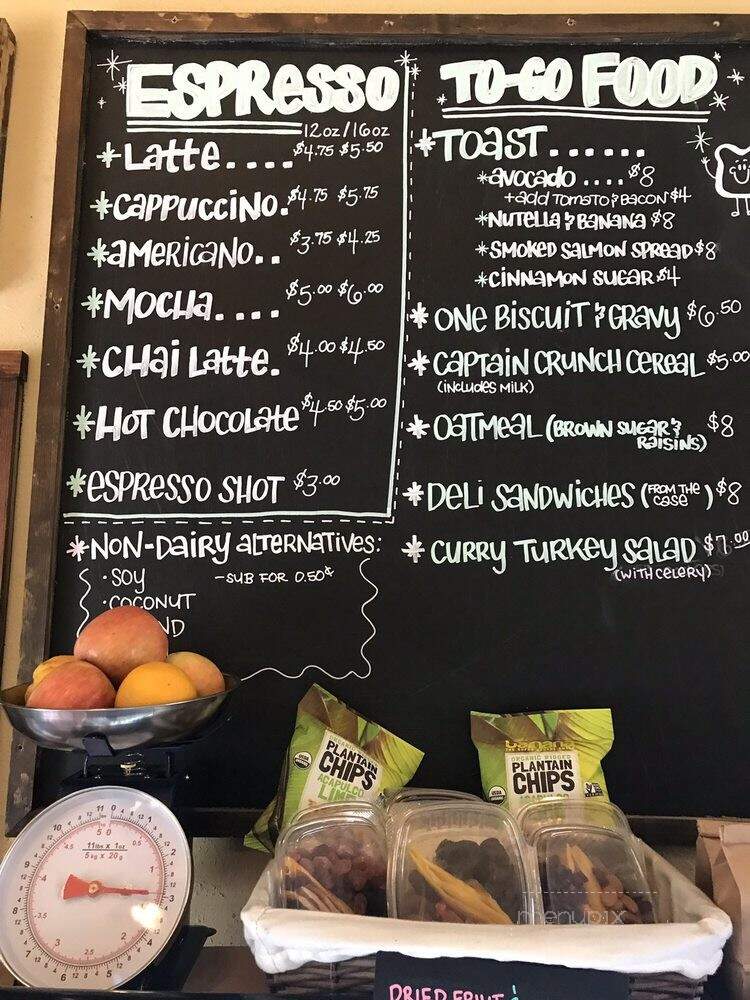 ESPRESSO
12oz/16oz
*Latte.... $4.75 $5.50
*CAPPUCCINO. $4.75 $5.75
*americano.. $3.75 $4.25
*MOCHA.... $5.00 $6.00
*CHai Latte. $4.00 $4.50
*HOT CHOCOLATE $4.50 $5.00
*ESPRESSO SHOT $3.00
*NON-Dairy alternatives:
·SOY -SUB FOR 0.50¢
·COCONUT
TO-GO FOOD
*TOAST......
*avocado .... $8
+add TOMATO & BACON $4
*NUTELLA & BANANA $8
*SMOKED SALMON SPREAD $8
*CINNAMON SUGAR $4
*ONE BISCUIT & GRAVY $6.50
*CAPTAIN CRUNCH CEREAL $5.00
(INCLUDES MILK)
*OATMEAL (BROWN SUGAR & $8
RAISINS)
*DELI SANDWICHES (FROM THE $8
CASE)
*CURRY TURKEY SALAD $7.00
(WITH CELERY)
PLANTAIN
CHIPS
ACAPULCO
LIME
ORGANIC
PLANTAIN
CHIPS
ACAPULCO
11lbs x 1oz
5kg x 20g
menupix
DRIED FRUIT &